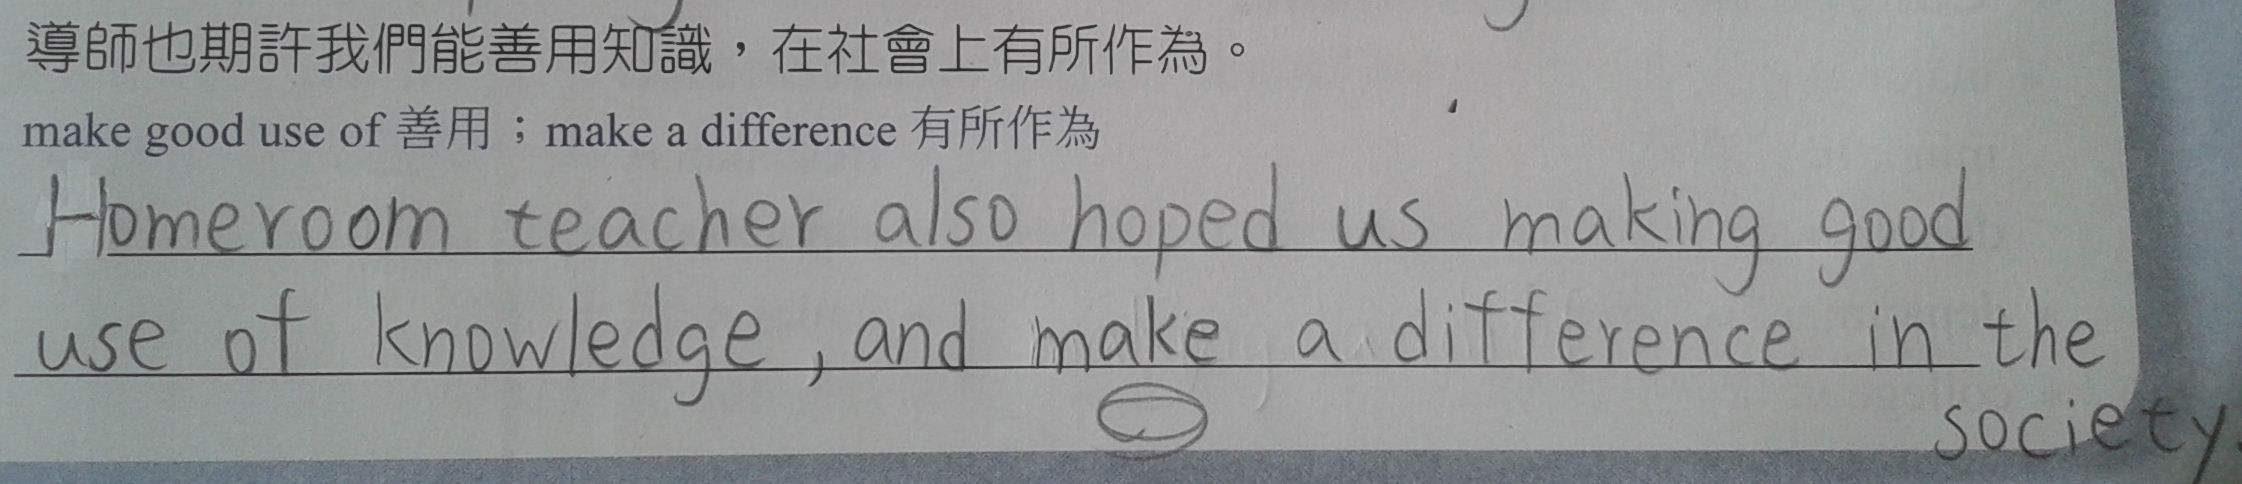 導師也期許我們能善用知識，在社會上有所作為。
make good use of 善用；make a difference 有所作為
Homeroom teacher also hoped us making good
use of knowledge, and make a difference in the
society.